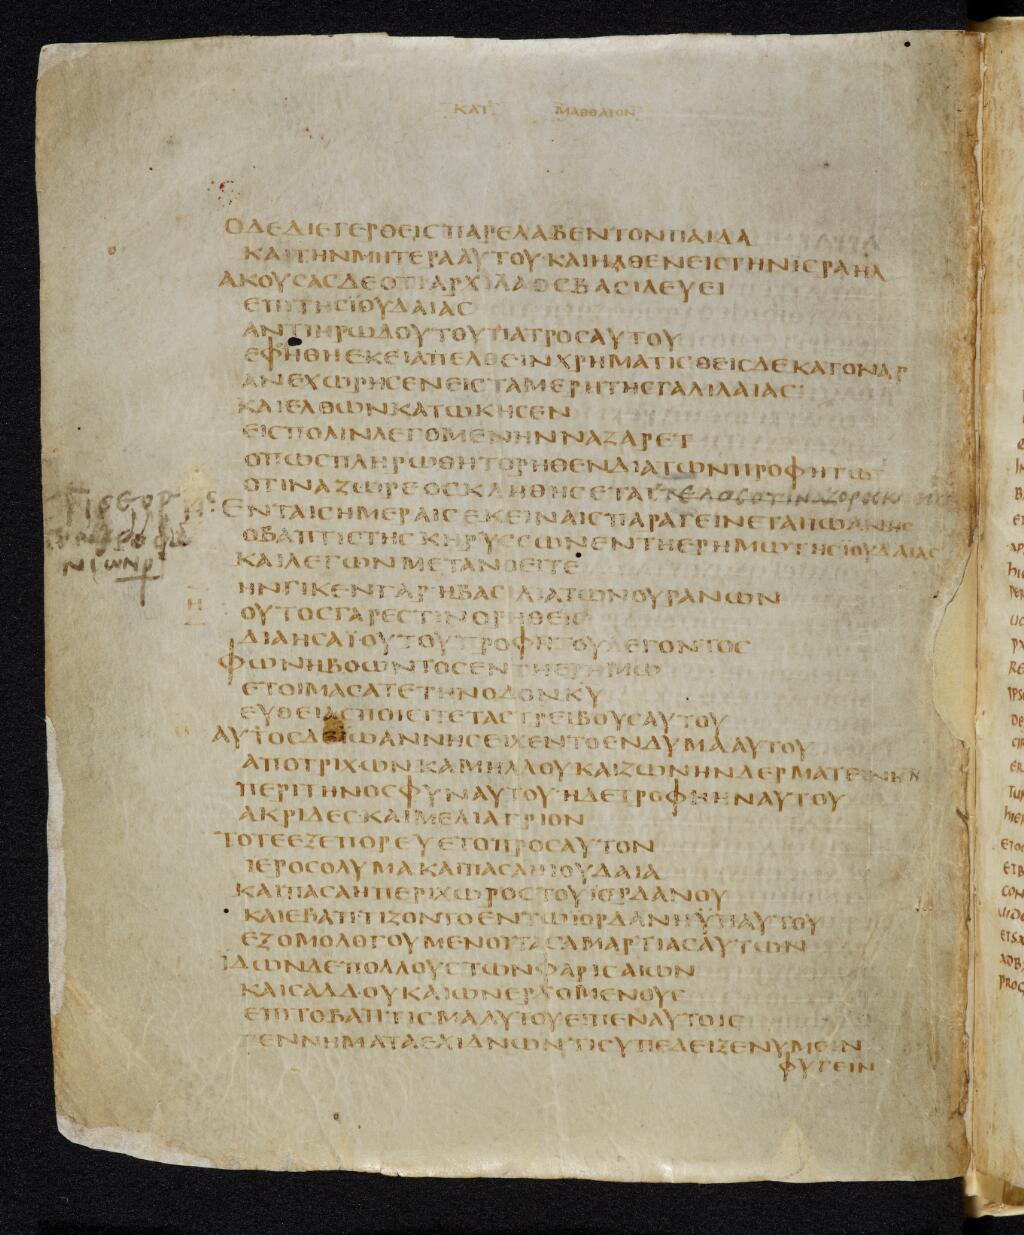 ΚΑΤ ΜΑΘΘΑΙΟΝ
Ο ΔΕ ΔΙΕΓΕΡΘΕΙΣ ΠΑΡΕΛΑΒΕΝ ΤΟΝ ΠΑΙΔΑ
ΚΑΙ ΤΗΝ ΜΗΤΕΡΑ ΑΥΤΟΥ· ΚΑΙ ΗΛΘΕΝ ΕΙΣ ΓΗΝ ΙΣΡΑΗΛ
ΑΚΟΥΣΑΣ ΔΕ ΟΤΙ ΑΡΧΙΛΑΟΣ ΒΑΣΙΛΕΥΕΙ
ΕΠΙ ΤΗΣ ΙΟΥΔΑΙΑΣ
ΑΝΤΙ ΗΡΩΔΟΥ ΤΟΥ ΠΑΤΡΟΣ ΑΥΤΟΥ
ΕΦΗΘΗ ΕΚΕΙ ΑΠΕΛΘΕΙΝ ΧΡΗΜΑΤΙΣΘΕΙΣ ΔΕ ΚΑΤ ΟΝΑΡ
ΑΝΕΧΩΡΗΣΕΝ ΕΙΣ ΤΑ ΜΕΡΗ ΤΗΣ ΓΑΛΙΛΑΙΑΣ
ΚΑΙ ΕΛΘΩΝ ΚΑΤΩΚΗΣΕΝ
ΕΙΣ ΠΟΛΙΝ ΛΕΓΟΜΕΝΗΝ ΝΑΖΑΡΕΤ
ΟΠΩΣ ΠΛΗΡΩΘΗ ΤΟ ΡΗΘΕΝ ΔΙΑ ΤΩΝ ΠΡΟΦΗΤΩ
ΟΤΙ ΝΑΖΩΡΕΟΣ ΚΛΗΘΗΣΕΤΑΙ ΤΕΛΟΣ
ΕΝ ΤΑΙΣ ΗΜΕΡΑΙΣ ΕΚΕΙΝΑΙΣ ΠΑΡΑΓΕΙΝΕΤΑΙ ΙΩΑΝΗΣ
Ο ΒΑΠΤΙΣΤΗΣ ΚΗΡΥΣΣΩΝ ΕΝ ΤΗ ΕΡΗΜΩ ΤΗΣ ΙΟΥΔΑΙΑΣ
ΚΑΙ ΛΕΓΩΝ ΜΕΤΑΝΟΕΙΤΕ
ΗΝΓΙΚΕΝ ΓΑΡ Η ΒΑΣΙΛΙΑ ΤΩΝ ΟΥΡΑΝΩΝ
Η
ΟΥΤΟΣ ΓΑΡ ΕΣΤΙΝ Ο ΡΗΘΕΙΣ
ΔΙΑ ΗΣΑΙΟΥ ΤΟΥ ΠΡΟΦΗΤΟΥ ΛΕΓΟΝΤΟΣ
ΦΩΝΗ ΒΟΩΝΤΟΣ ΕΝ ΤΗ ΕΡΗΜΩ
ΕΤΟΙΜΑΣΑΤΕ ΤΗΝ ΟΔΟΝ ΚΥ
ΕΥΘΕΙΑΣ ΠΟΙΕΙΤΕ ΤΑΣ ΤΡΕΙΒΟΥΣ ΑΥΤΟΥ
ΑΥΤΟΣ ΔΕ ΙΩΑΝΝΗΣ ΕΙΧΕΝ ΤΟ ΕΝΔΥΜΑ ΑΥΤΟΥ
ΑΠΟ ΤΡΙΧΩΝ ΚΑΜΗΛΛΟΥ ΚΑΙ ΖΩΝΗΝ ΔΕΡΜΑΤΕΙΝΗΝ
ΠΕΡΙ ΤΗΝ ΟΣΦΥΝ ΑΥΤΟΥ· Η ΔΕ ΤΡΟΦΗ ΗΝ ΑΥΤΟΥ
ΑΚΡΙΔΕΣ· ΚΑΙ ΜΕΛΙ ΑΓΡΙΟΝ
ΤΟΤΕ ΕΞΕΠΟΡΕΥΕΤΟ ΠΡΟΣ ΑΥΤΟΝ
ΙΕΡΟΣΟΛΥΜΑ ΚΑΙ ΠΑΣΑ Η ΙΟΥΔΑΙΑ
ΚΑΙ ΠΑΣΑ Η ΠΕΡΙΧΩΡΟΣ ΤΟΥ ΙΟΡΔΑΝΟΥ
ΚΑΙ ΕΒΑΠΤΙΖΟΝΤΟ ΕΝ ΤΩ ΙΟΡΔΑΝΗ ΥΠ ΑΥΤΟΥ
ΕΞΟΜΟΛΟΓΟΥΜΕΝΟΙ ΤΑΣ ΑΜΑΡΤΙΑΣ ΑΥΤΩΝ
ΙΔΩΝ ΔΕ ΠΟΛΛΟΥΣ ΤΩΝ ΦΑΡΙΣΑΙΩΝ
ΚΑΙ ΣΑΔΔΟΥΚΑΙΩΝ ΕΡΧΟΜΕΝΟΥΣ
ΕΠΙ ΤΟ ΒΑΠΤΙΣΜΑ ΑΥΤΟΥ ΕΙΠΕΝ ΑΥΤΟΙΣ
ΓΕΝΝΗΜΑΤΑ ΕΧΙΔΝΩΝ ΤΙΣ ΥΠΕΔΕΙΞΕΝ ΥΜΕΙΝ
ΦΥΓΕΙΝ